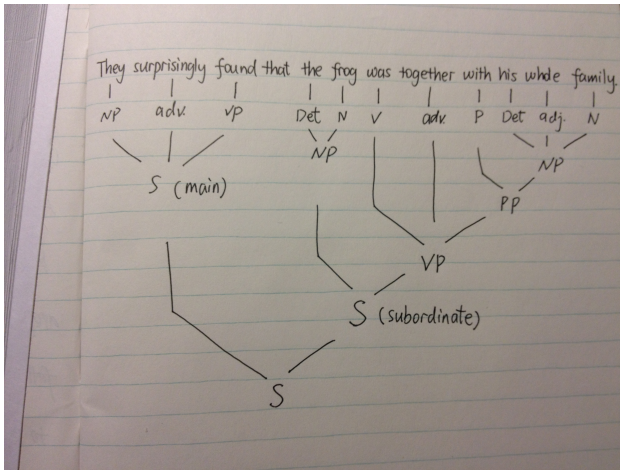 They surprisingly found that the frog was together with his whole family.
NP adv. VP Det N V adv. P Det adj. N
NP NP
S (main)
PP
VP
S (subordinate)
S